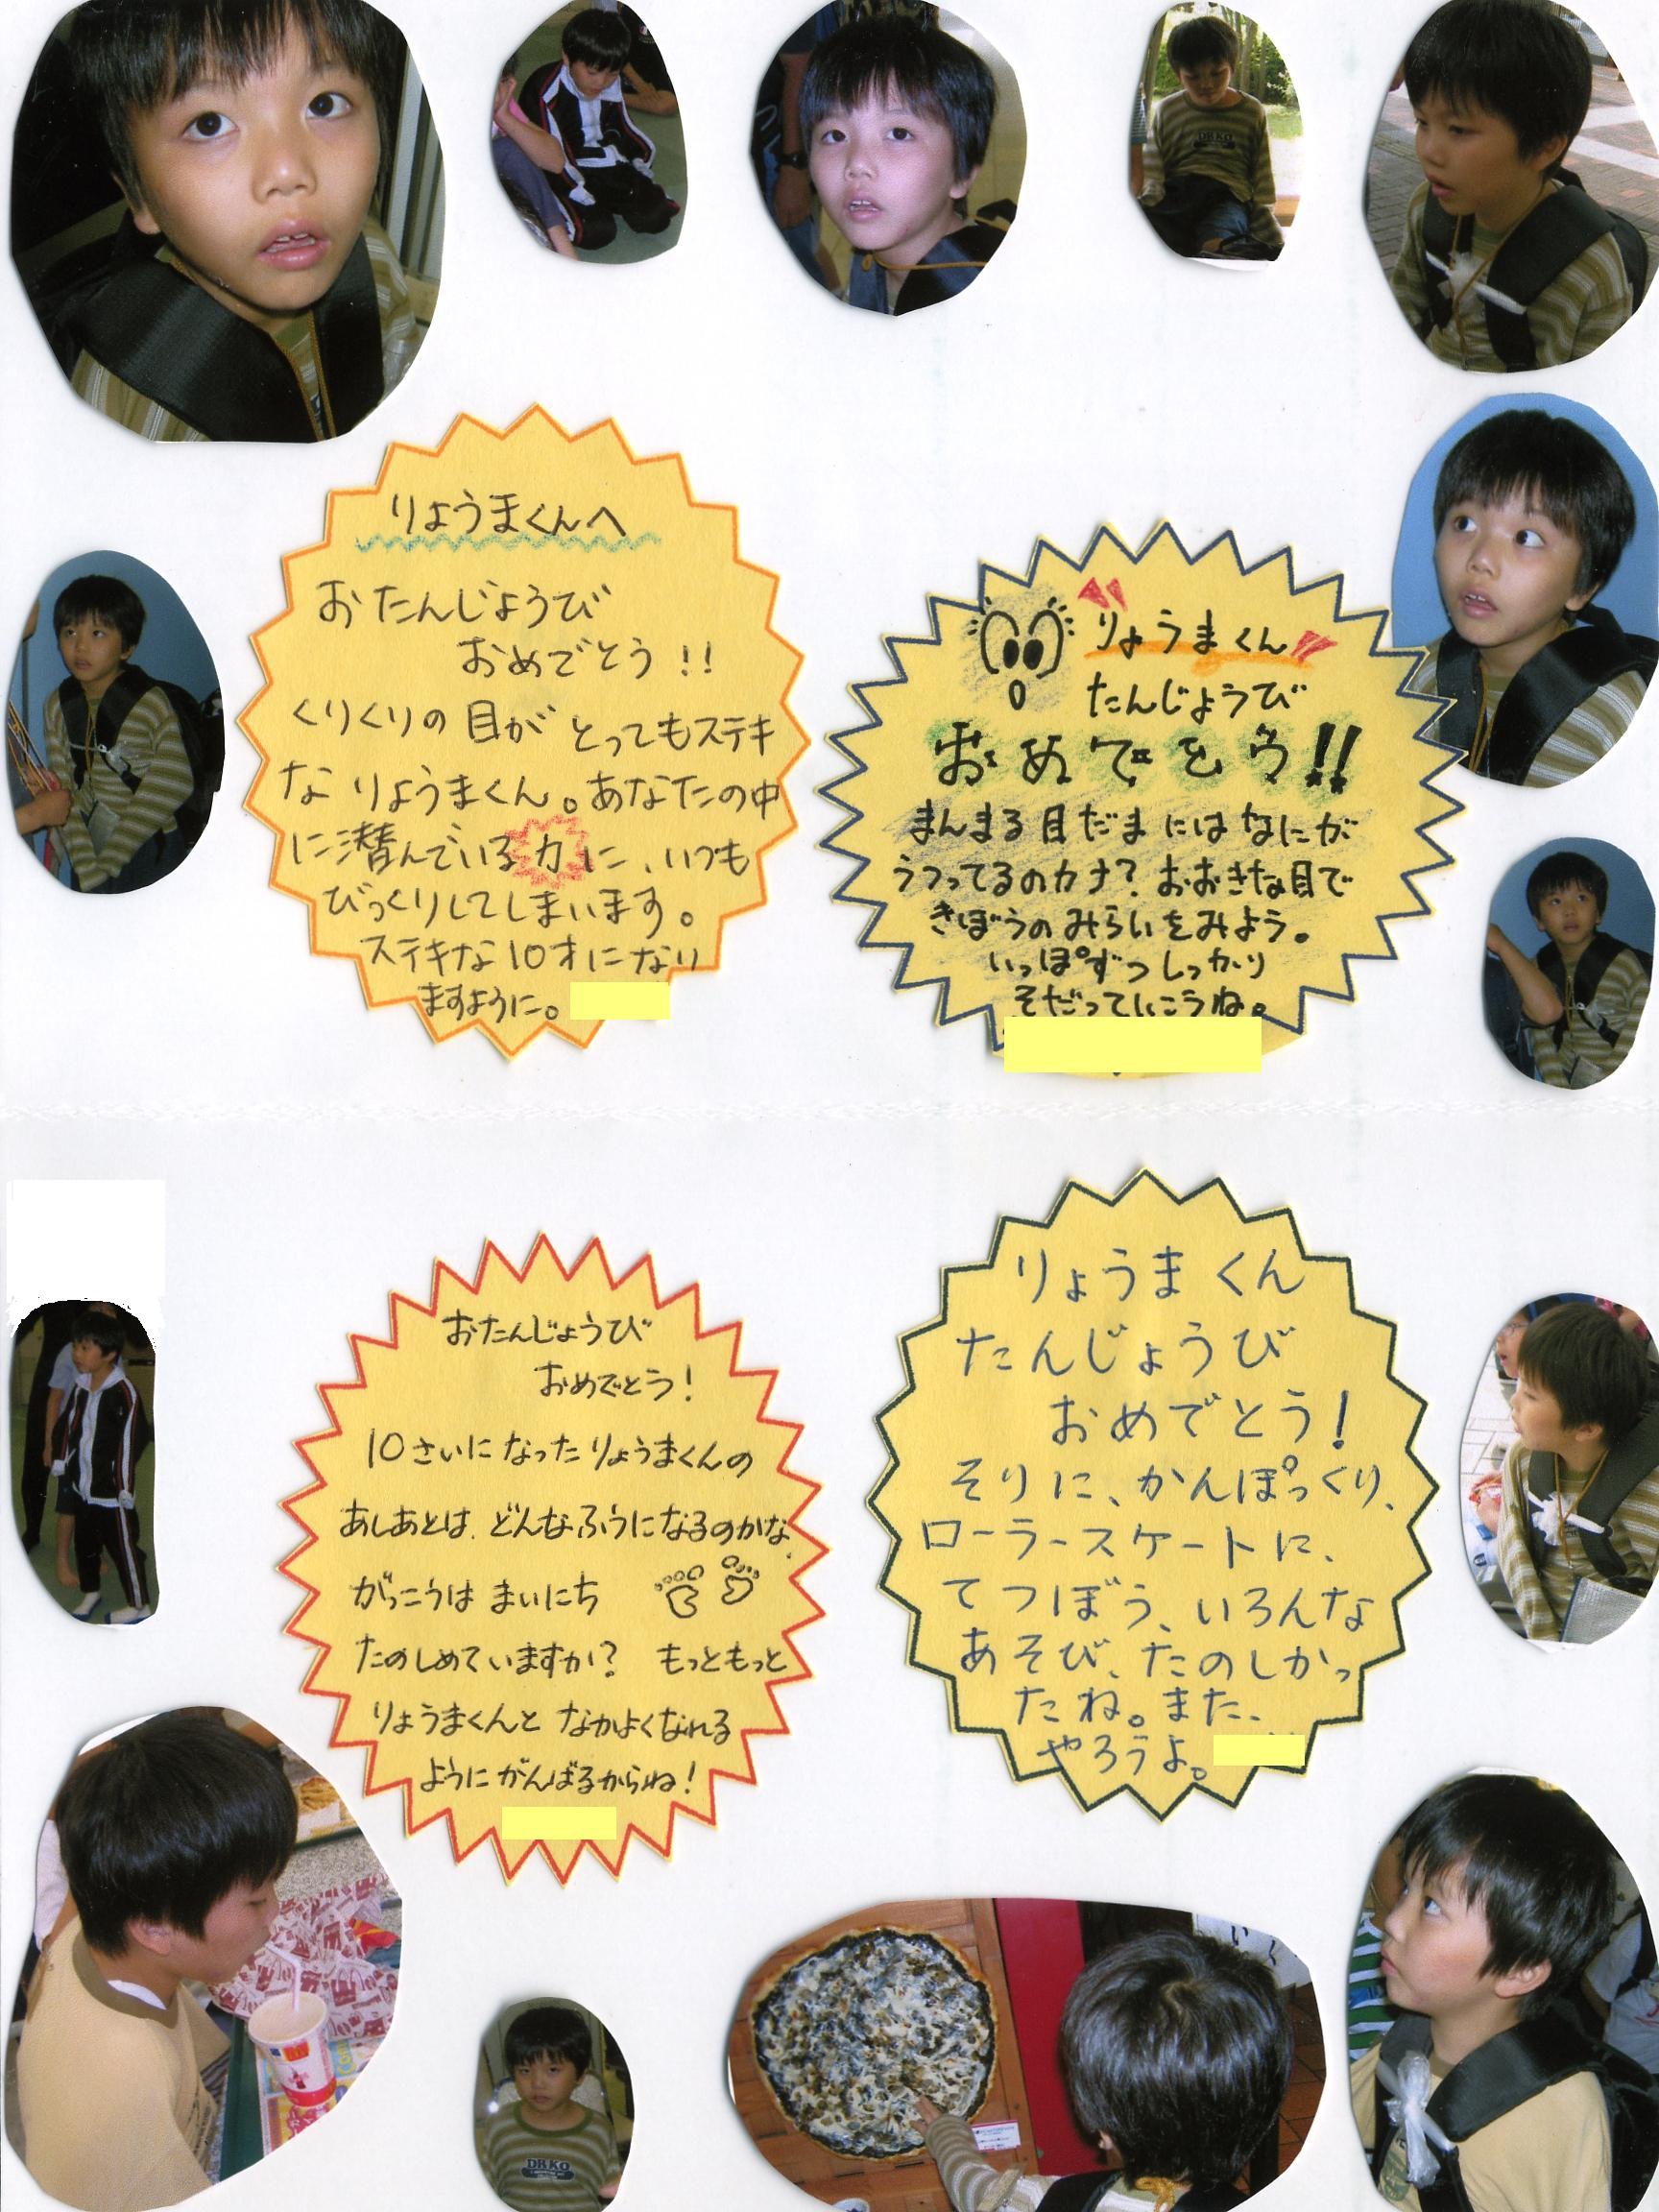 りょうまくんへ
おたんじょうび
おめでとう!!
くりくりの目がとってもステキ
なりょうまくん。あなたの中
に潜んでいる力に、いつも
びっくりしてしまいます。
ステキな10才になり
ますように。
りょうまくん
たんじょうび
おめでとう!!
まんまる目だまにはなにが
うつってるのカナ?おおきな目で
きぼうのみらいをみよう。
いっぽずつしっかり
そだっていこうね。
おたんじょうび
おめでとう!
10さいになったりょうまくんの
あしあとは、どんなふうになるのかな。
がっこうはまいにち
たのしめていますか? もっともっと
りょうまくんとなかよくなれる
ようにがんばるからね!
りょうまくん
たんじょうび
おめでとう!
そりに、かんぽっくり、
ローラースケートに、
てつぼう、いろんな
あそび、たのしかっ
たね。また、
やろうよ。
DRKO
DRKO